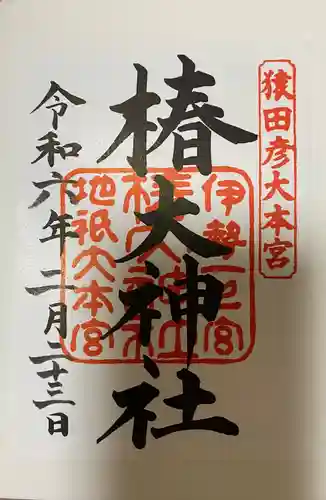 猿田彦大本宮
椿大神社
伊勢一宮
椿大神社
地祇大本宮
令和六年二月二十三日